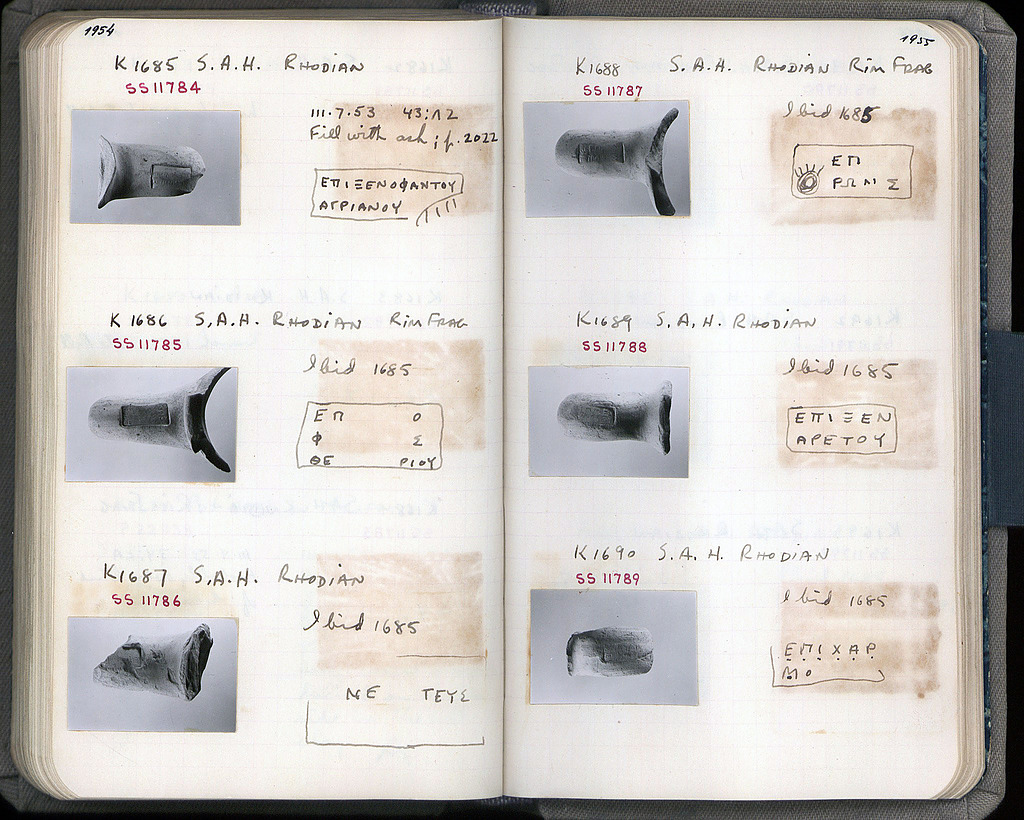 1954
K1685 S.A.H. RHODIAN
SS 11784
III.7.53 43:ΛΖ
Fill with ash; p.2022
ΕΠΙΞΕΝΟΦΑΝΤΟΥ
ΑΓΡΙΑΝΟΥ
K1686 S.A.H. RHODIAN RIM FRAG
SS 11785
Ibid 1685
ΕΠ Ο
Φ Σ
ΘΕ ΡΙΟΥ
K1687 S.A.H. RHODIAN
SS 11786
Ibid 1685
ΜΕ ΤΕΥΣ
1955
K1688 S.A.H. RHODIAN RIM FRAG
SS 11787
Ibid 1685
ΕΠ
ΡΩΜΣ
K1689 S.A.H. RHODIAN
SS 11788
Ibid 1685
ΕΠΙΞΕΝ
ΑΡΕΤΟΥ
K1690 S.A.H. RHODIAN
SS 11789
Ibid 1685
ΕΠΙΧΑΡ
ΜΟ